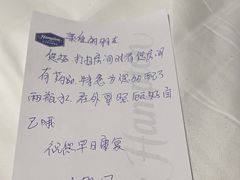 Hampton
亲爱的朋友
您好，打扫房间时看您房间
有药品，特意为您加配了
两瓶水，在外要照顾好自
己哦
祝您早日康复